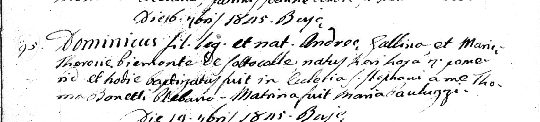 Die 16 9bris 1845. Base
95. Dominicus fil. leg. et nat. Andreę Gallina, et Marię
Theresię Piemonte de natus heri hora 7. pomerid
et hodie baptizatus fuit in Ecclesia S. Stephani a me Tho
ma Bonetti Plebano - Matrina fuit Maria
Die 19. 9bris 1845. Base